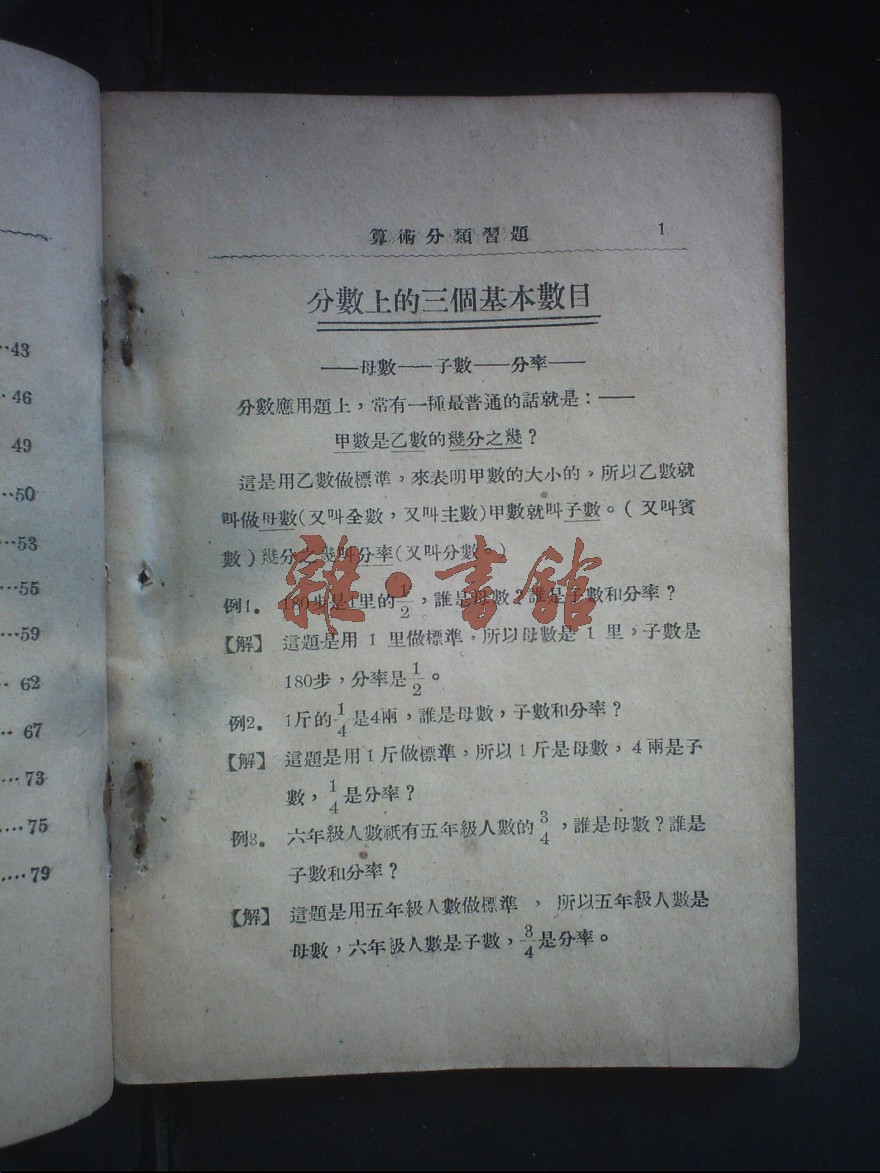 ··43
· 46
· 49
··50
···53
···55
···59
·· 62
·· 67
··· 73
···· 75
···· 79
算術分類習題 1
分數上的三個基本數目
——母數——子數——分率——
分數應用題上，常有一種最普通的話就是：——
甲數是乙數的幾分之幾？
這是用乙數做標準，來表明甲數的大小的，所以乙數就
叫做母數(又叫全數，又叫主數)甲數就叫子數。（又叫賓
數）幾分之幾叫分率(又叫分數。)
例1。 180步是1里的1/2，誰是母數？誰是子數和分率？
【解】 這題是用 1 里做標準，所以母數是 1 里，子數是
180步，分率是1/2。
例2。 1斤的1/4是4兩，誰是母數，子數和分率？
【解】 這題是用1斤做標準，所以1斤是母數，4兩是子
數，1/4是分率？
例3。 六年級人數祇有五年級人數的3/4，誰是母數？誰是
子數和分率？
【解】 這題是用五年級人數做標準，所以五年級人數是
母數，六年級人數是子數，3/4是分率。
雜·書館